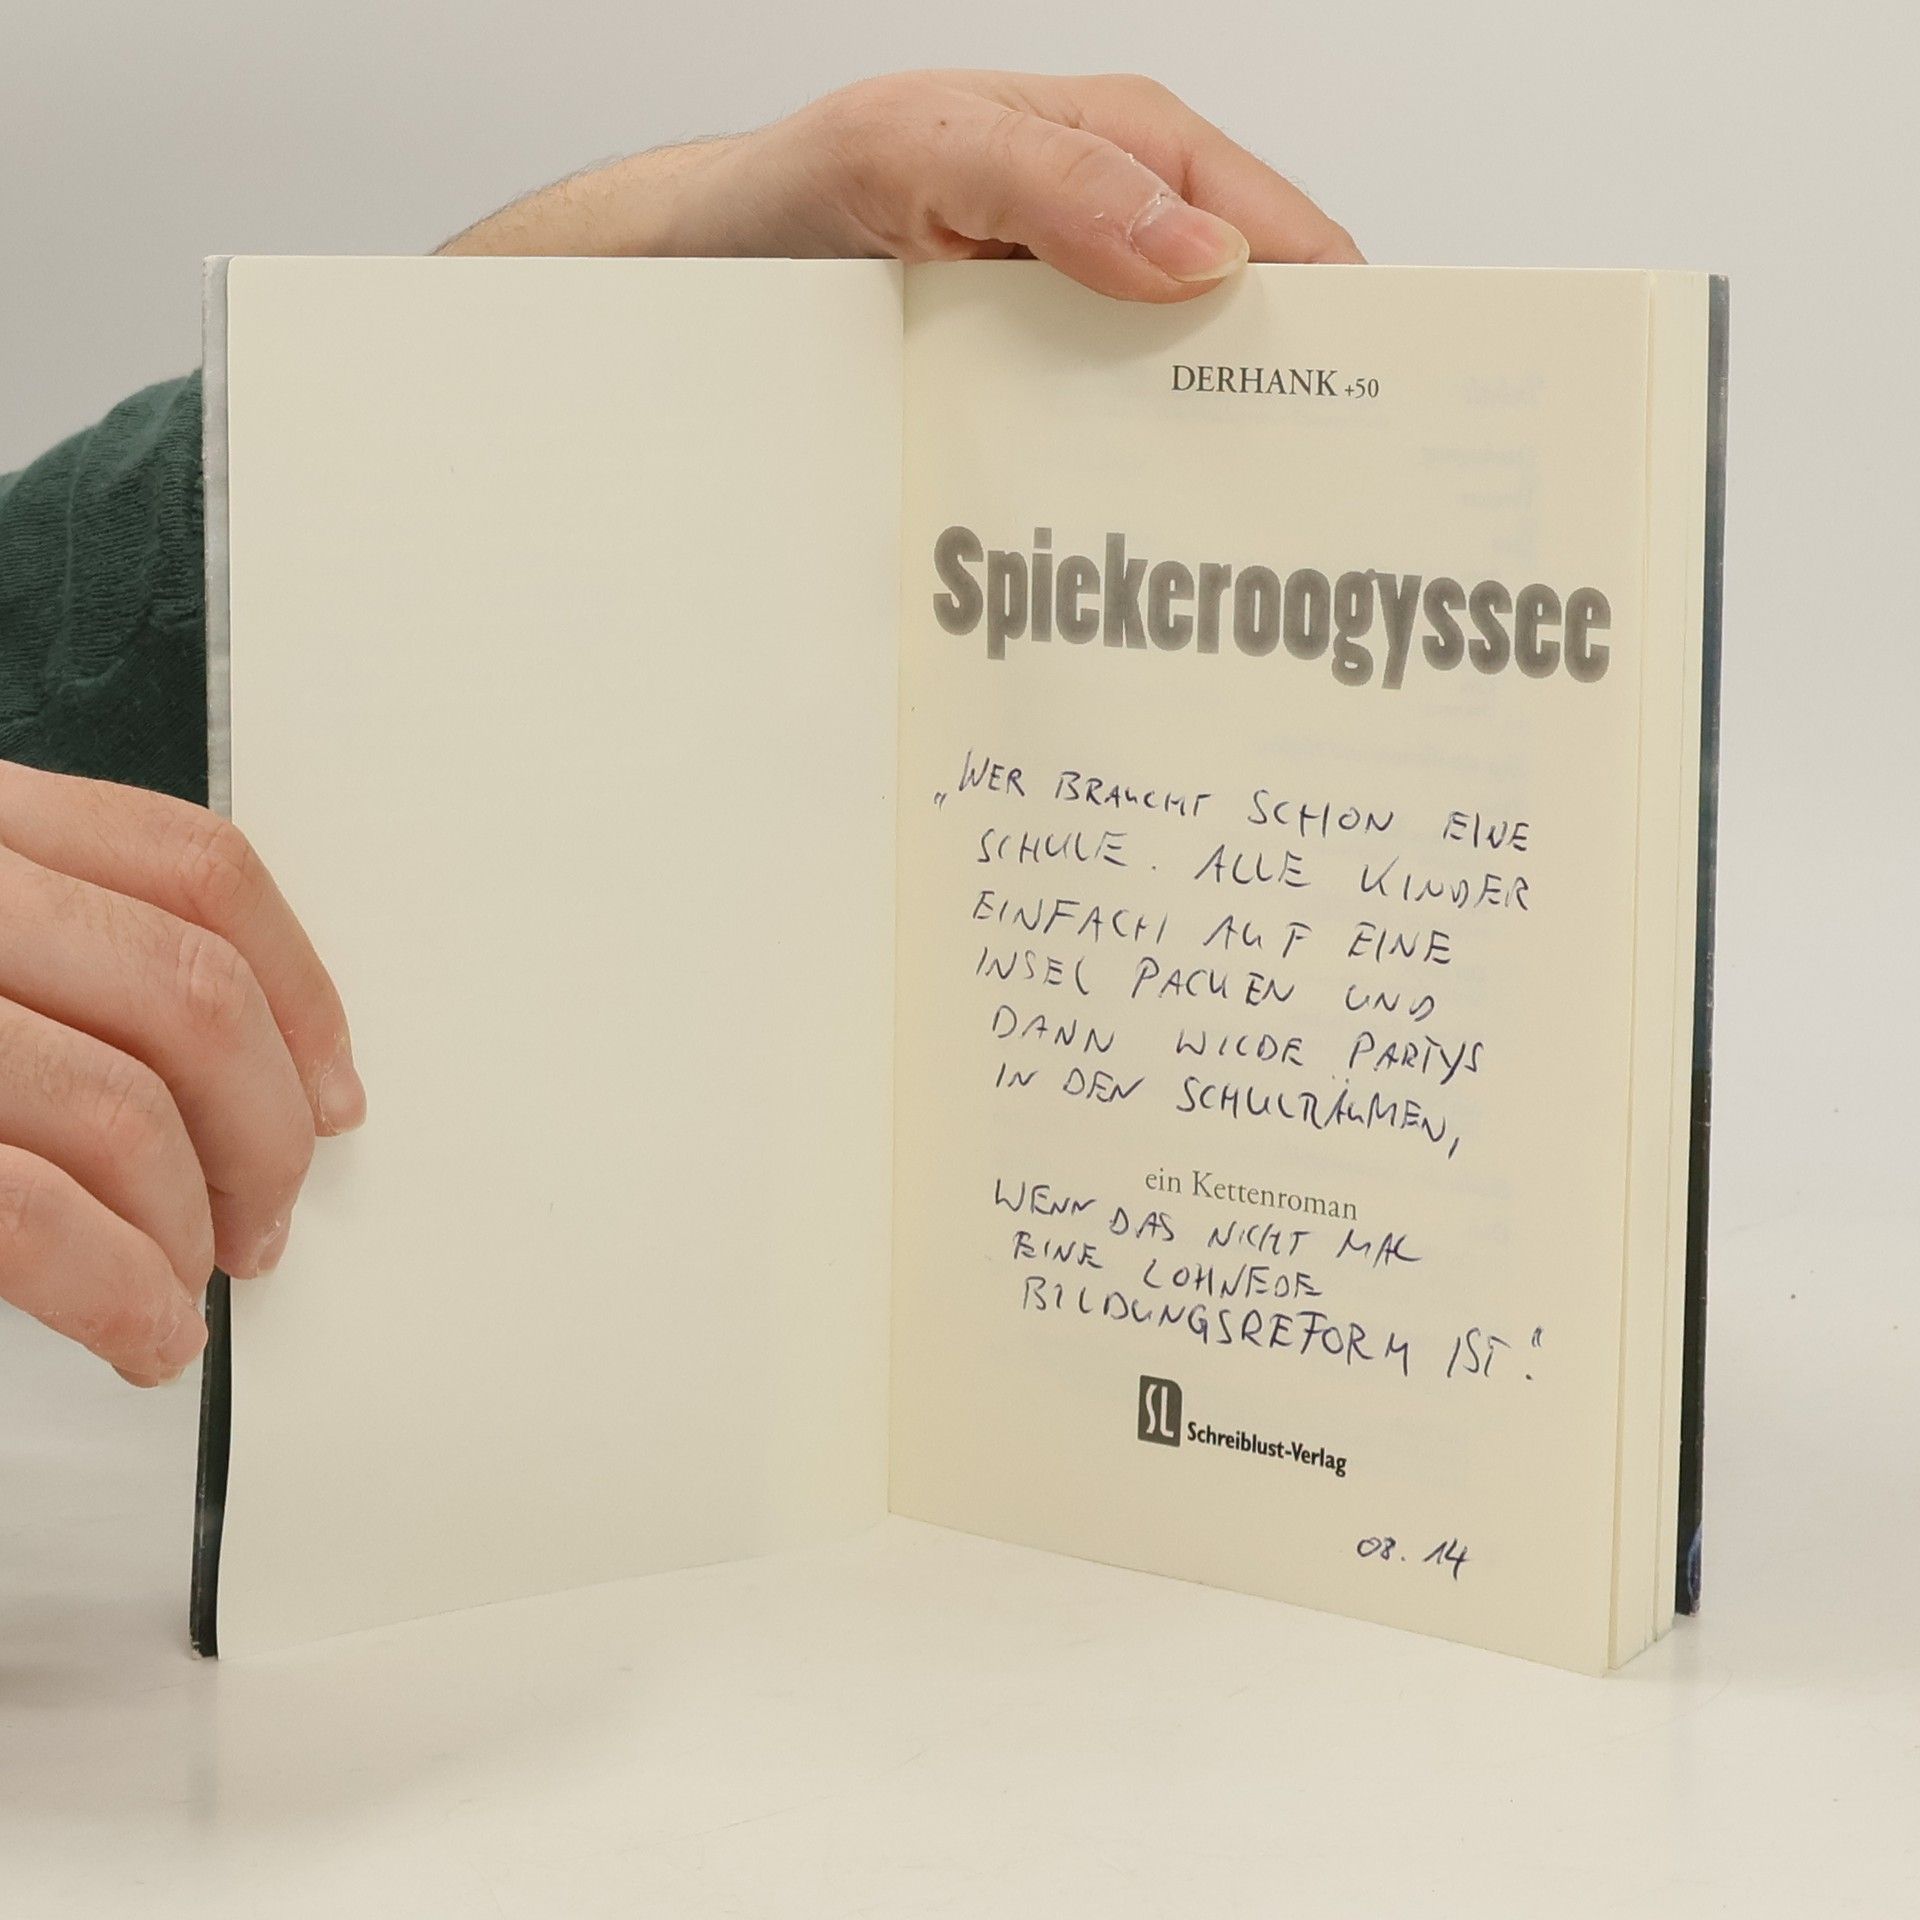 DERHANK +50
Spiekeroogyssee
„WER BRAUCHT SCHON EINE
SCHULE. ALLE KINDER
EINFACH AUF EINE
INSEL PACKEN UND
DANN WILDE PARTYS
IN DEN SCHULRÄUMEN,
ein Kettenroman
WENN DAS NICHT MAL
EINE LOHNEDE
BILDUNGSREFORM IST."
SL Schreiblust-Verlag
08. 14